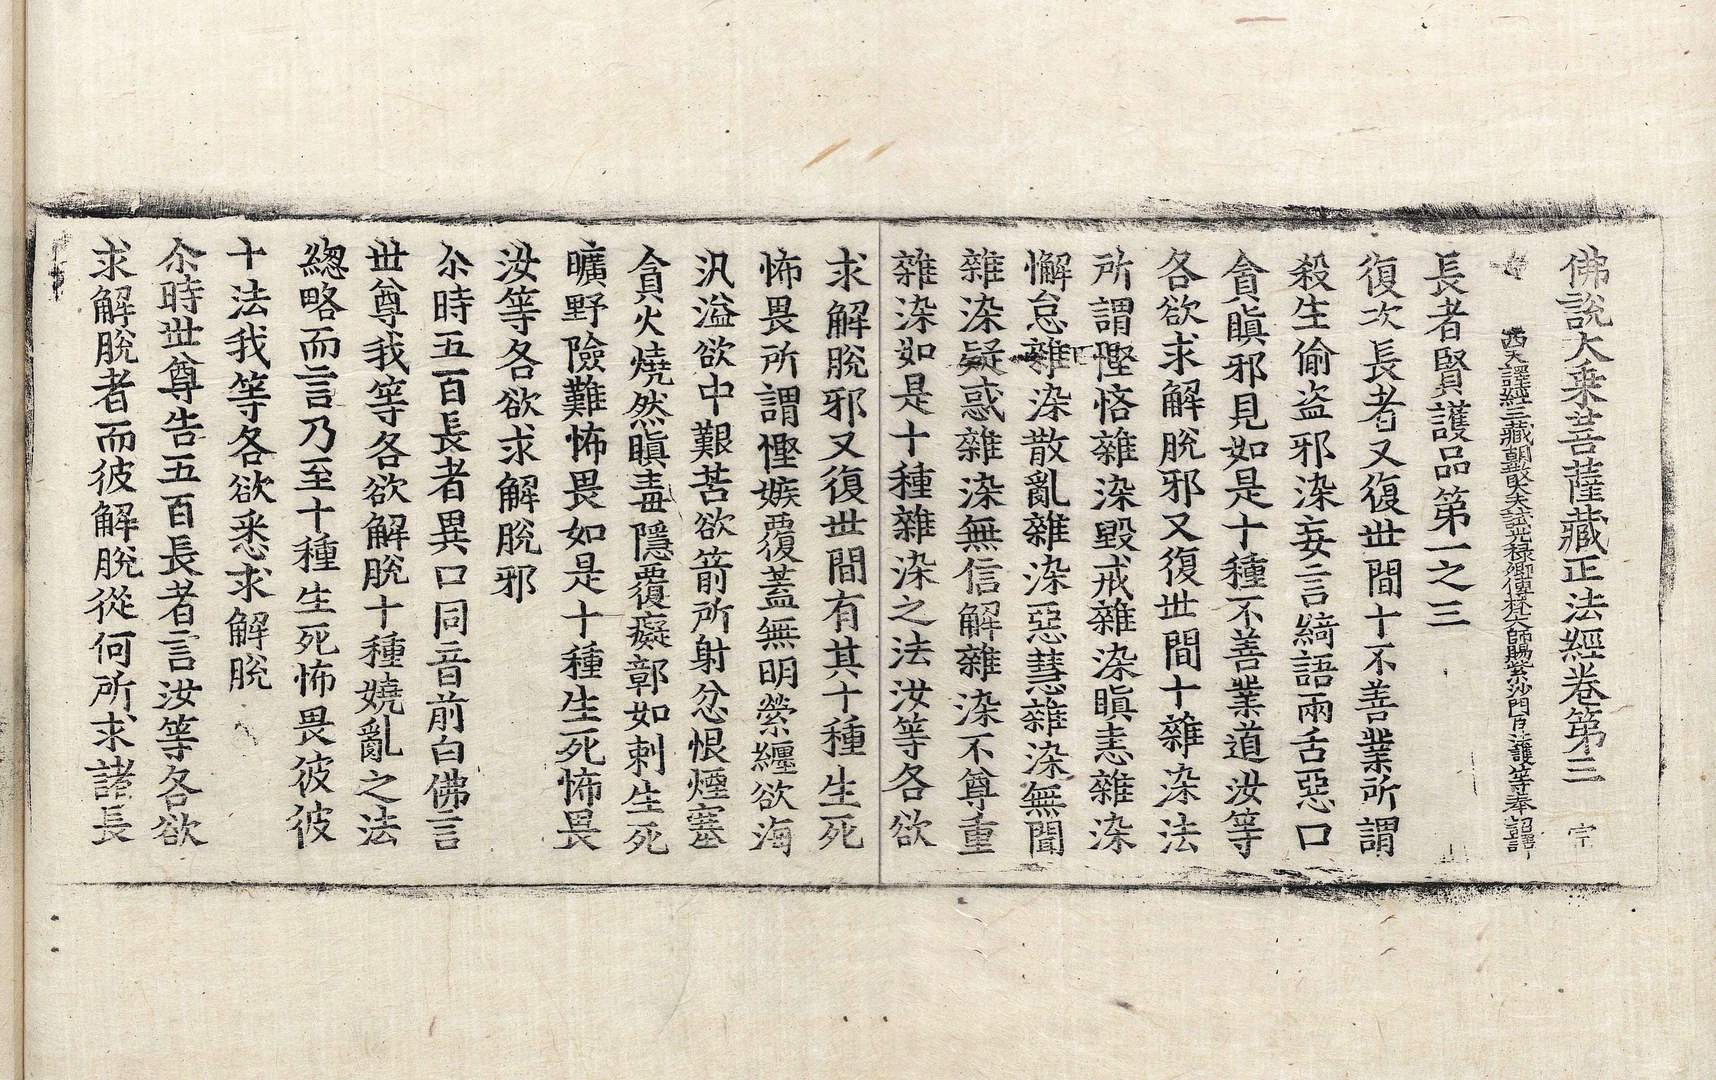 佛說大乘菩薩藏正法經卷第三　宇
西天譯經三藏朝散大夫試光祿卿傳梵大師賜紫沙門臣法護等奉詔譯
長者賢護品第一之三
復次長者又復世間十不善業所謂
殺生偷盜邪染妄言綺語兩舌惡口
貪瞋邪見如是十種不善業道汝等
各欲求解脫邪又復世間十雜染法
所謂慳悋雜染毀戒雜染瞋恚雜染
懈怠雜染散亂雜染惡慧雜染無聞
雜染疑惑雜染無信解雜染不尊重
雜染如是十種雜染之法汝等各欲
求解脫邪又復世間有其十種生死
怖畏所謂慳嫉覆蓋無明縈纏欲海
汎溢欲中艱苦欲箭所射忿恨煙塞
貪火燒然瞋毒隱覆癡鄣如刺生死
曠野險難怖畏如是十種生死怖畏
汝等各欲求解脫邪
尒時五百長者異口同音前白佛言
世尊我等各欲解脫十種嬈亂之法
緫略而言乃至十種生死怖畏彼彼
十法我等各欲悉求解脫
尒時世尊告五百長者言汝等各欲
求解脫者而彼解脫從何所求諸長